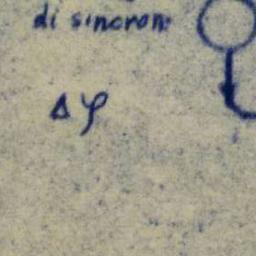 di sincron.
Δφ